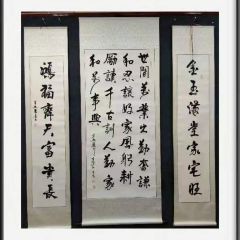 金玉滿堂家宅旺
世間萬業出勤奮謙
和忍讓好家風躬耕
勵讀千古訓人勤家
和萬事興
鴻福齊天富貴長